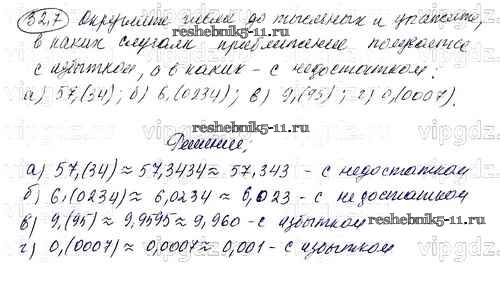 32,7 Округлите числа до тысячных и укажите,
в каких случаях приближение получается
с избытком, а в каких - с недостатком:
а) 57,(34); б) 6,(0234); в) 9,(95); г) 0,(0007).
reshebnik5-11.ru
Решение:
reshebnik5-11.ru
а) 57,(34) ≈ 57,3434 ≈ 57,343 - с недостатком
б) 6,(0234) ≈ 6,0234 ≈ 6,023 - с недостатком
в) 9,(95) ≈ 9,9595 ≈ 9,960 - с избытком
reshebnik5-11.ru
г) 0,(0007) ≈ 0,0007 ≈ 0,001 - с избытком
reshebnik5-11.ru
vipgdz